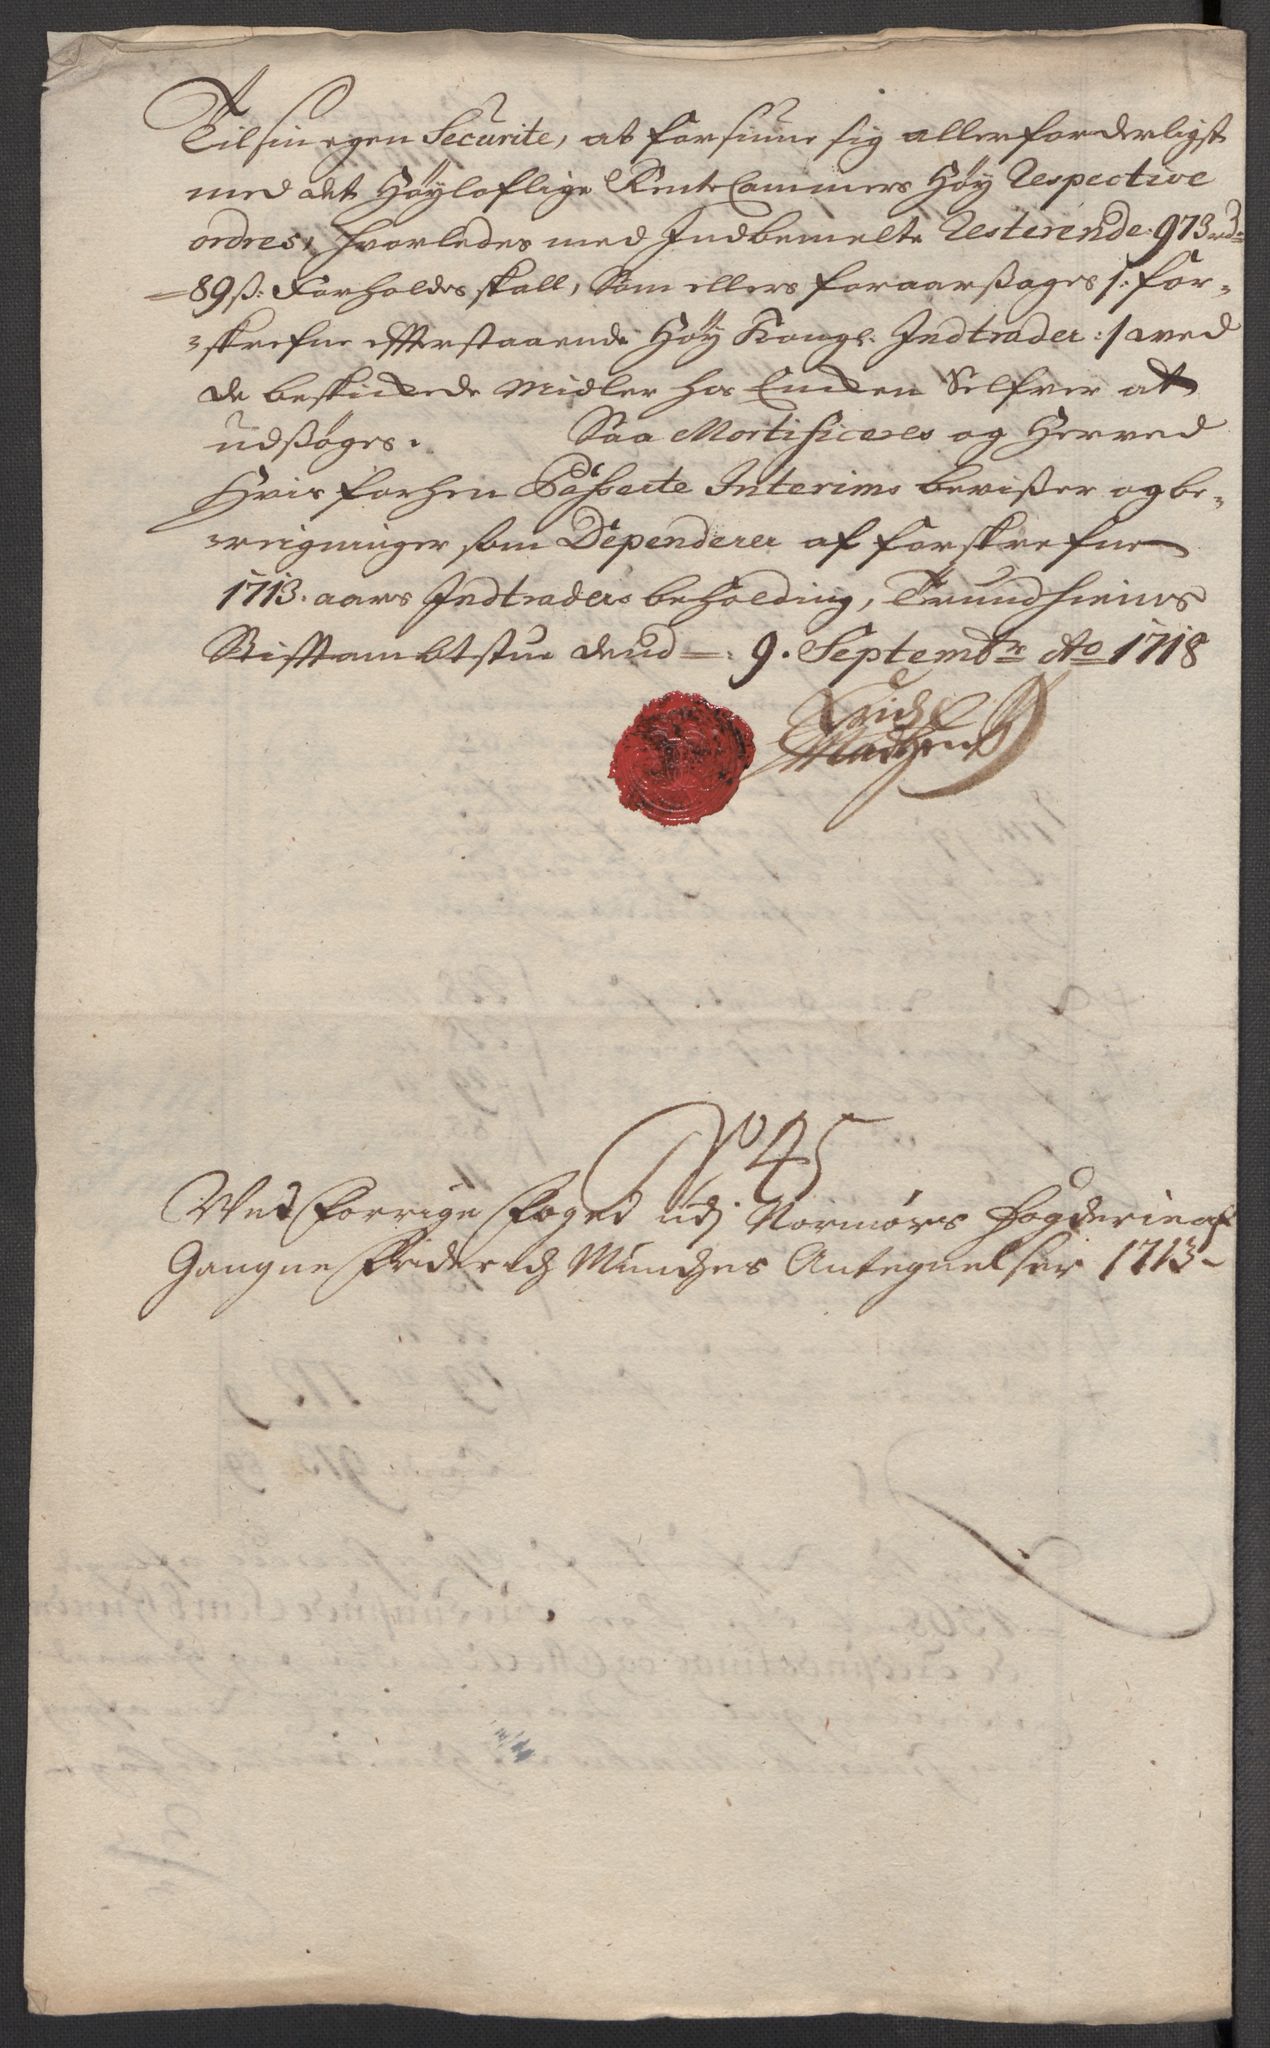 Til sin egen Securite, at forsiune sig allerforderligst
med det Høyloflige Rente Cammers Høy Respective
ordres, hvorledes med Indbemelte Resterende 973 rd
89 ß: Forholdes skall, Som ellers foraarßages /: for-
skrefne effterstaaende Høy Kongl: Indtrader :/ ved
de beskickede Midler hos Enken Selfver at
udsøges. Saa Mortificeres og Herved
Hvis forhen Passerte Interims bevißer og be-
reigninger som Dependerer af forskrefne
1713. aars Indtraders beholding, Trundhiems
Stifftambtstue dend 9. Septembr Ao 1718
Erich
Madtzen
No 45
Ved Forrige Foged udj Normørs Fogderie af
Gangne Friderich Munches Antegnelser 1713